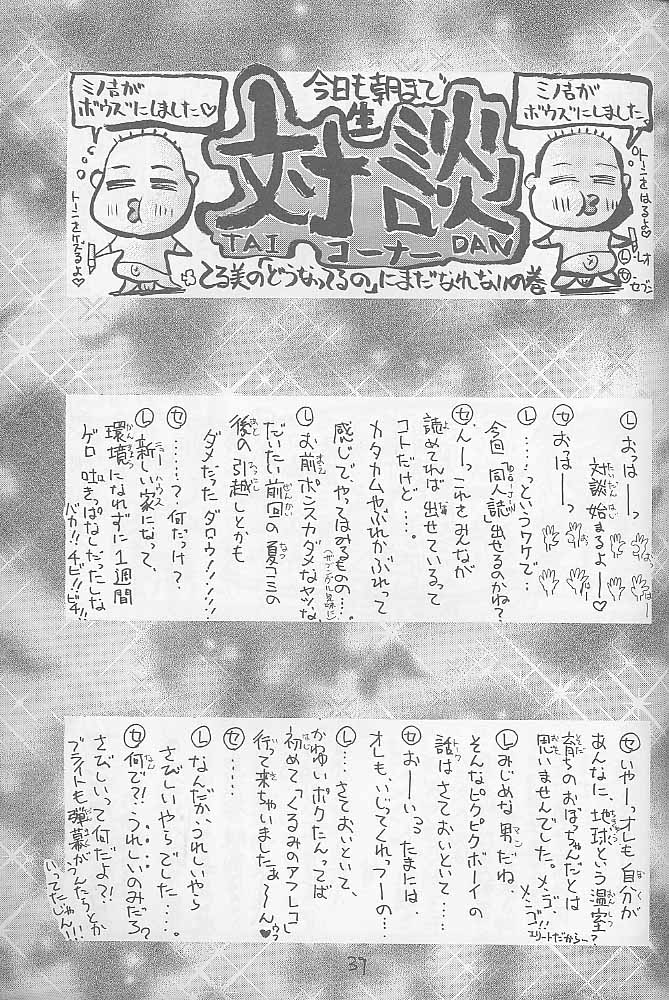 今日も朝まで
生
対談
TAI コーナー DAN
てる美の「どうなってるの」にまだなれないの巻
ミノ吉が
ボウズにしました。
トーンをはるよ
レオ
セブン
ミノ吉が
ボウズにしました♡
トーンをケズるよ♡
Ⓛおっはーっ
対談始まるよー♡
セおっはーっ
Ⓛ……っというワケで…
今回「同人誌」出せるのかね?
セんーっこれをみんなが
読めてれば出せているって
コトだけど…。
カタカムやぶれかぶれって
感じで、やってはみるものの…。
Ⓛお前ポンスカダメなヤツな、
だいたい前回の夏コミの
後の引越しとかも
ダメだったダロウ!!!!!
セ……?何だっけ?
Ⓛ新しい家になって、
環境になれずに1週間
ゲロ吐きっぱなしだったしな
バカ!!チビ!!ビチ!!
セいやーっオレも自分が
あんなに、地球という温室
育ちのおぼっちゃんだとは
思いませんでした。メンゴ
メンゴ!!
エリートだからー?
Ⓛみじめな男だね、
そんなピクピクボーイの
話はさておいといて…
セおーいっ たまには、
オレも、いじてくれっつーの…
Ⓛ…さておいといて、
かわゆいボクたんってば
初めて「くるみのアフレコ」
行って来ちゃいましたぁ〜ん♡
セ……
Ⓛなんだか、うれしいやら
さびしいやらでした……。
セ何で?!うれしいのみだろ?
さびしいって何だよ?!
ブライトも弾幕がうんたらとか
いってたじゃん!!
37